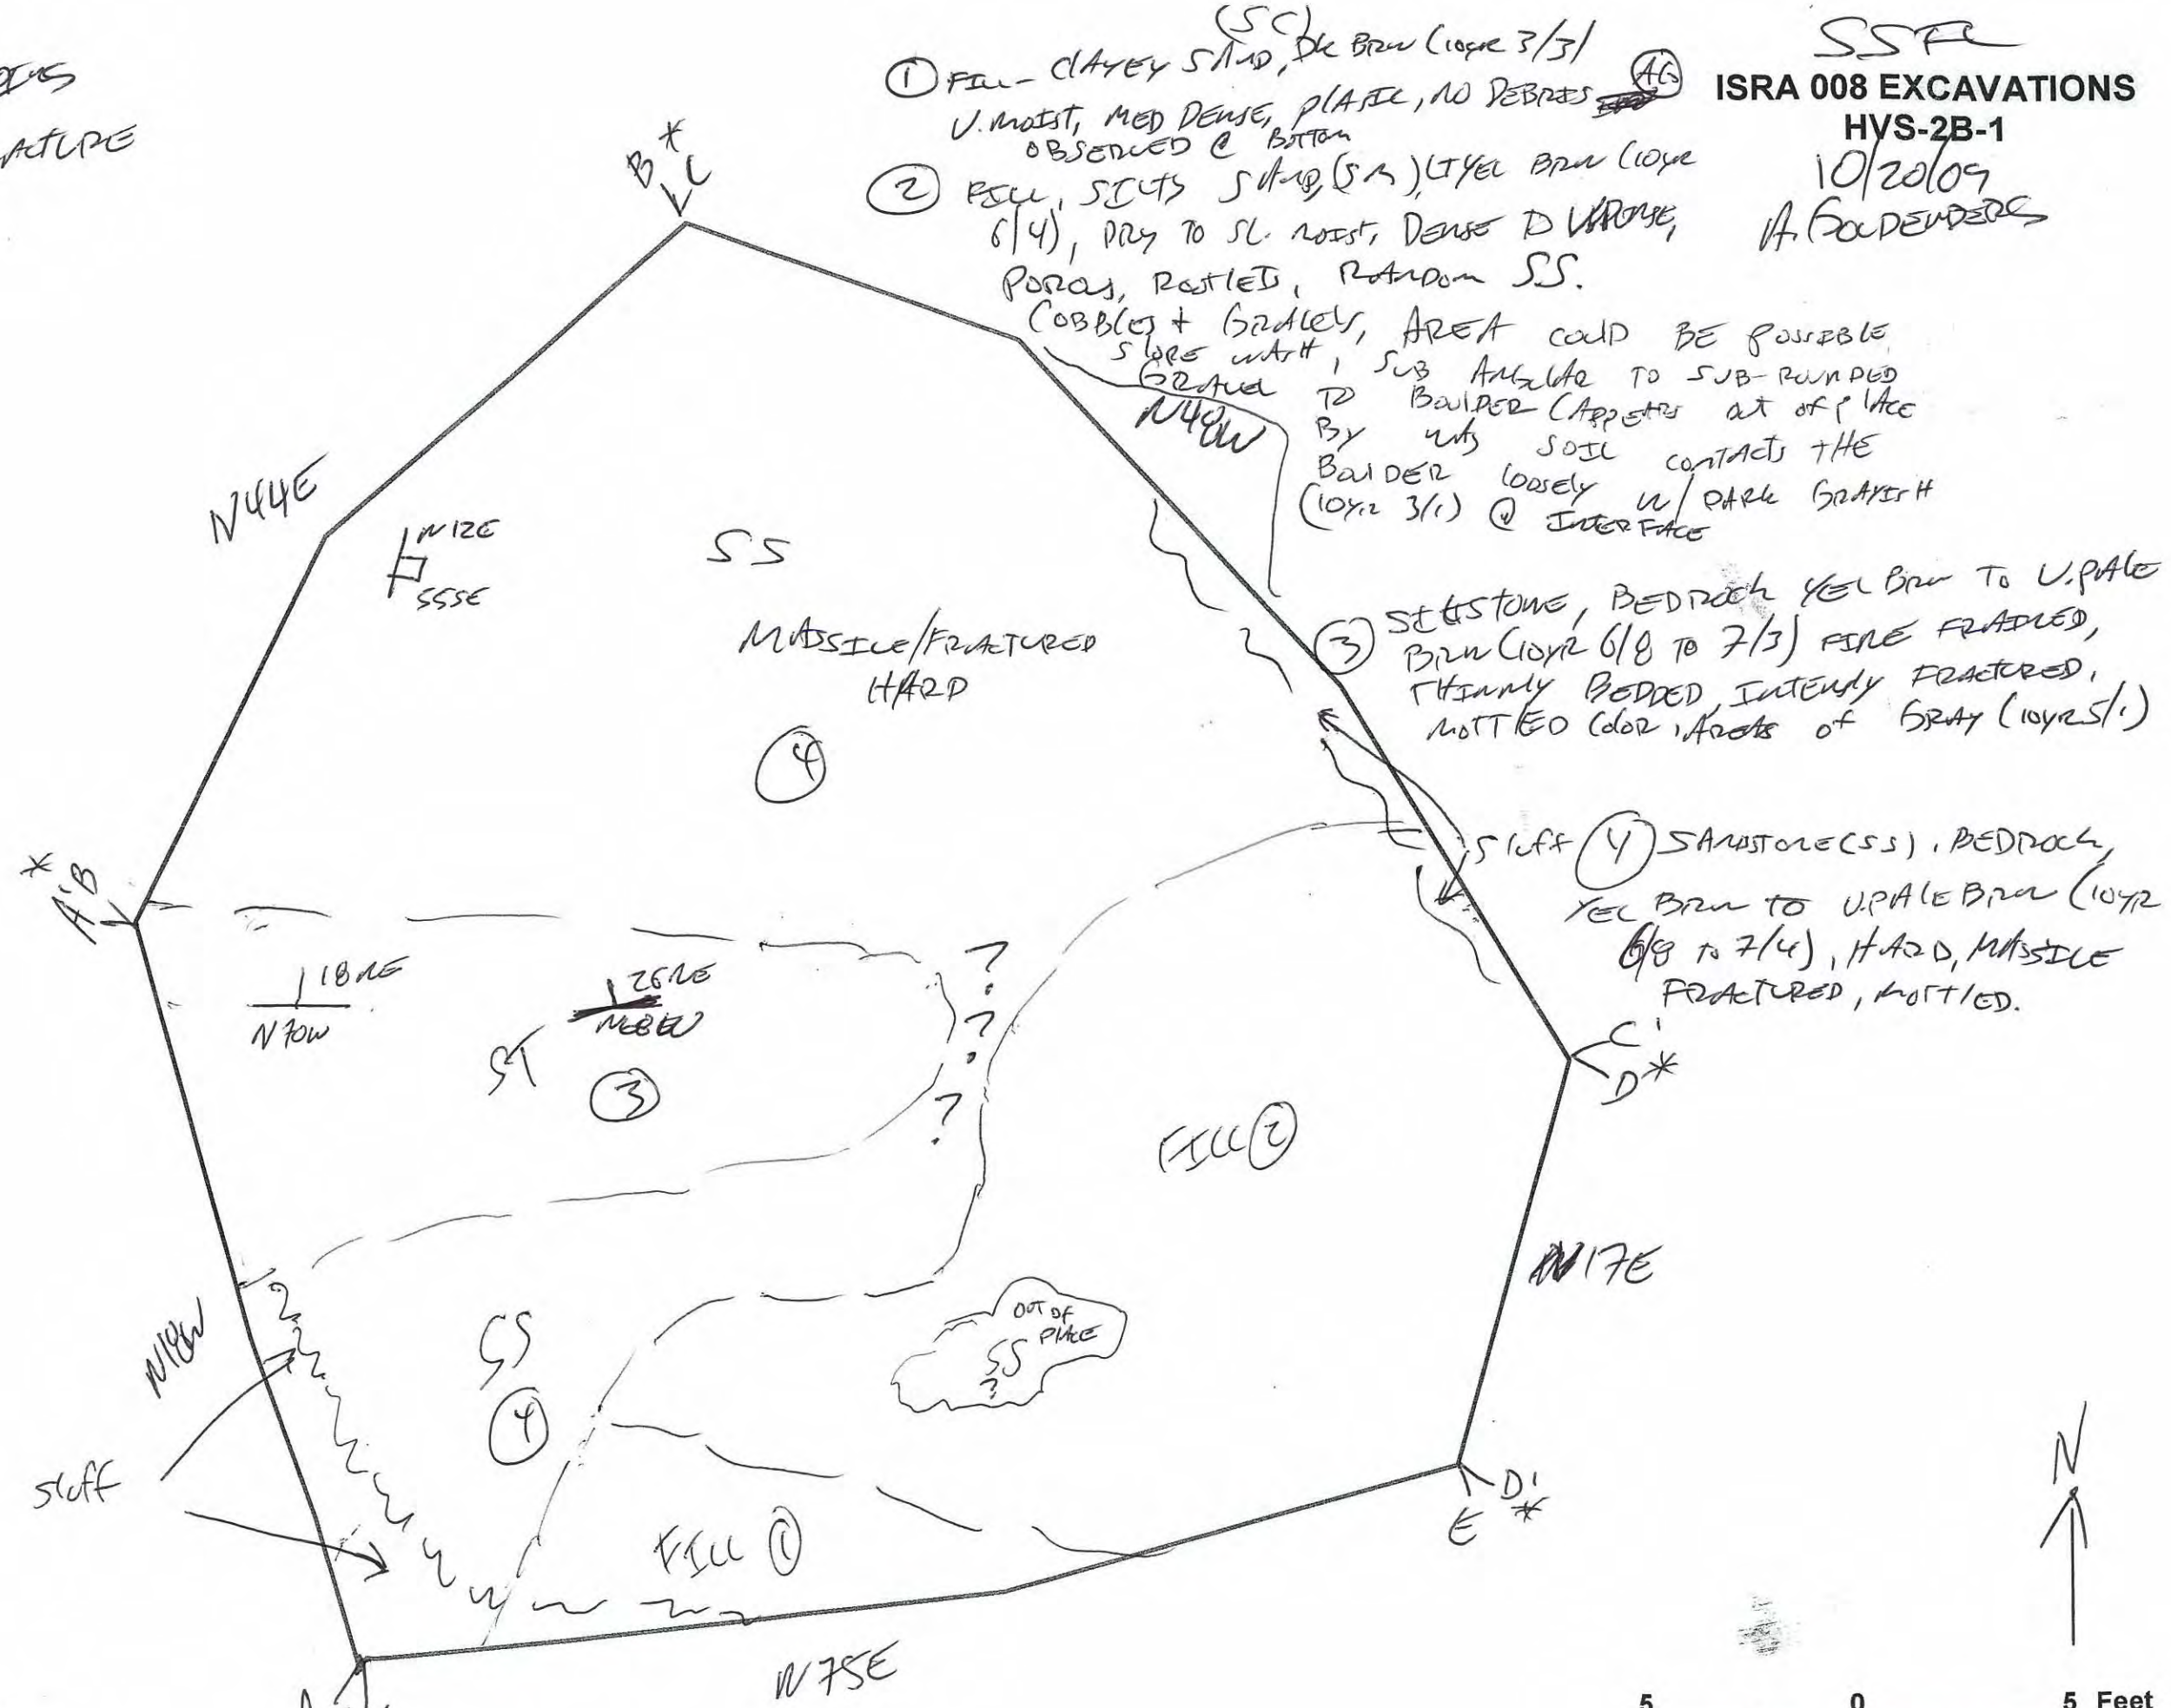 SSFL
ISRA 008 EXCAVATIONS
HVS-2B-1
10/20/09
(SC)
① FILL - CLAYEY SAND, DK BRN (10YR 3/3)
V. MOIST, MED DENSE, PLASTIC, NO DEBRIS AG
OBSERVED @ BOTTOM
② FILL, SILTY SAND, (SM), LT YEL BRN (10YR
6/4), DRY TO SL. MOIST, DENSE TO V. DENSE,
POROUS, ROOTLETS, RANDOM SS.
COBBLES + GRAVELS, AREA COULD BE POSSIBLE
SLOPE WASH, SUB ANGULAR TO SUB-ROUNDED
GRAVEL TO BOULDER (APPEARS OUT OF PLACE
BY WAY SOIL CONTACTS THE
BOULDER LOOSELY W/ DARK GRAYISH
(10YR 3/1) @ INTERFACE
③ SILTSTONE, BEDROCK YEL BRN TO V. PALE
BRN (10YR 6/8 TO 7/3) FINE GRAINED,
THINNLY BEDDED, INTENSLY FRACTURED,
MOTTLED COLOR, AREAS OF GRAY (10YR 5/1)
④ SANDSTONE (SS), BEDROCK,
YEL BRN TO V. PALE BRN (10YR
6/8 TO 7/4), HARD, MASSIVE
FRACTURED, MOTTLED.
B * C
N44E
N12E
SS
MASSIVE/FRACTURED
HARD
④
N48W
sluff
* A' B
18NE
N70W
26NE
ST
③
? ? ?
FILL ②
C'
D *
N17E
N18W
OUT OF
PLACE
SS
?
SS
④
sluff
FILL ①
D'
E *
N75E
A
N
5 0 5 Feet